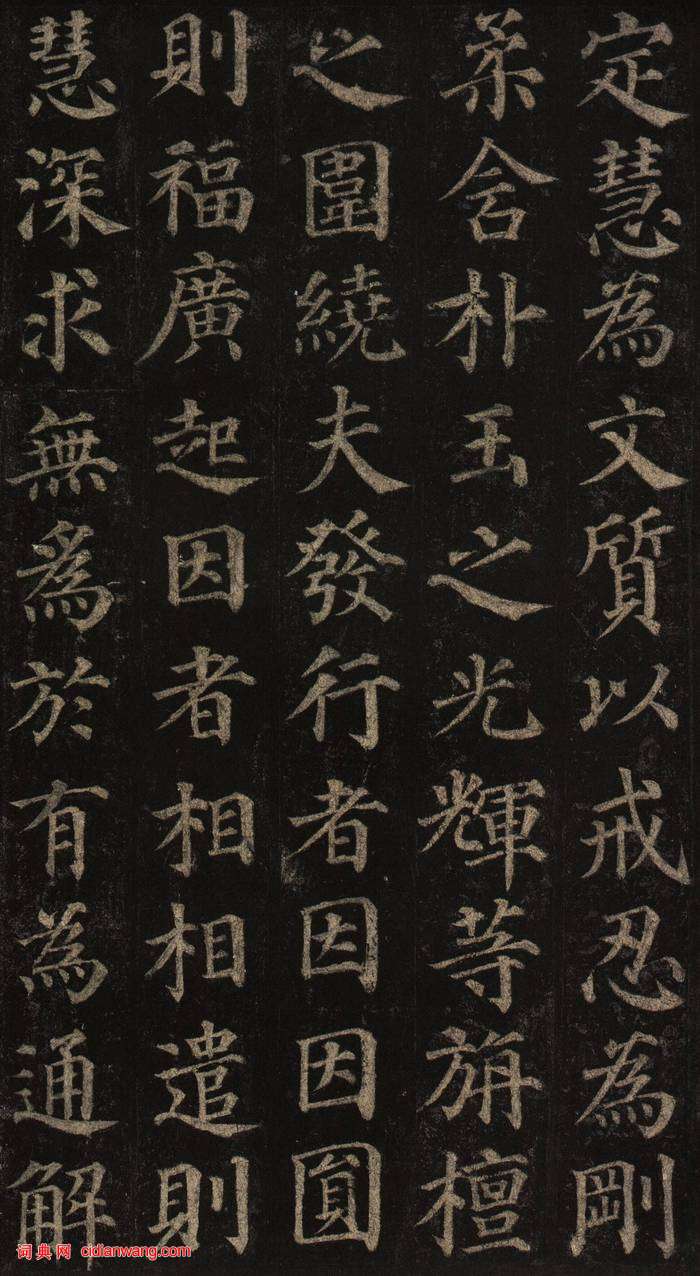 定慧為文質以戒忍為剛
柔含朴玉之光輝等旃檀
之圍繞夫發行者因因圓
則福廣起因者相相遣則
慧深求無為於有為通解
词典网 cidianwang.com